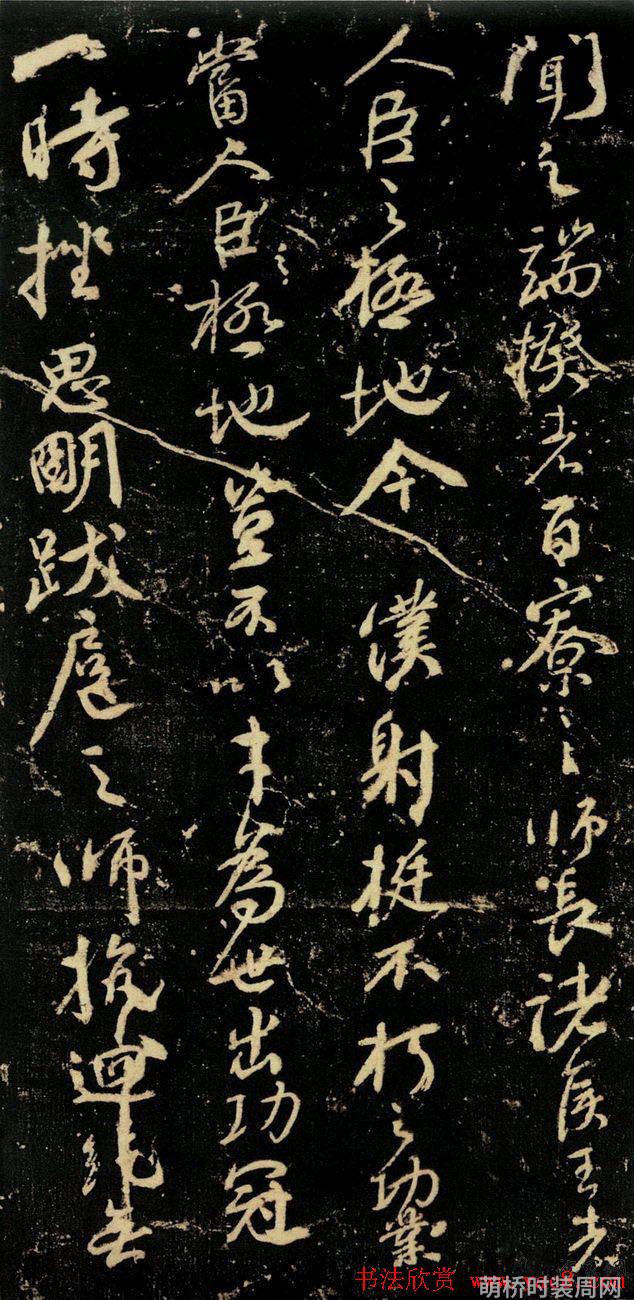 聞之端揆者百寮之師長諸侯王者
人臣之極地今僕射挺不朽之功業
當人臣之極地豈不以才為世出功冠
一時挫思明跋扈之師抗迴紇無
书法欣赏
萌桥时装周网